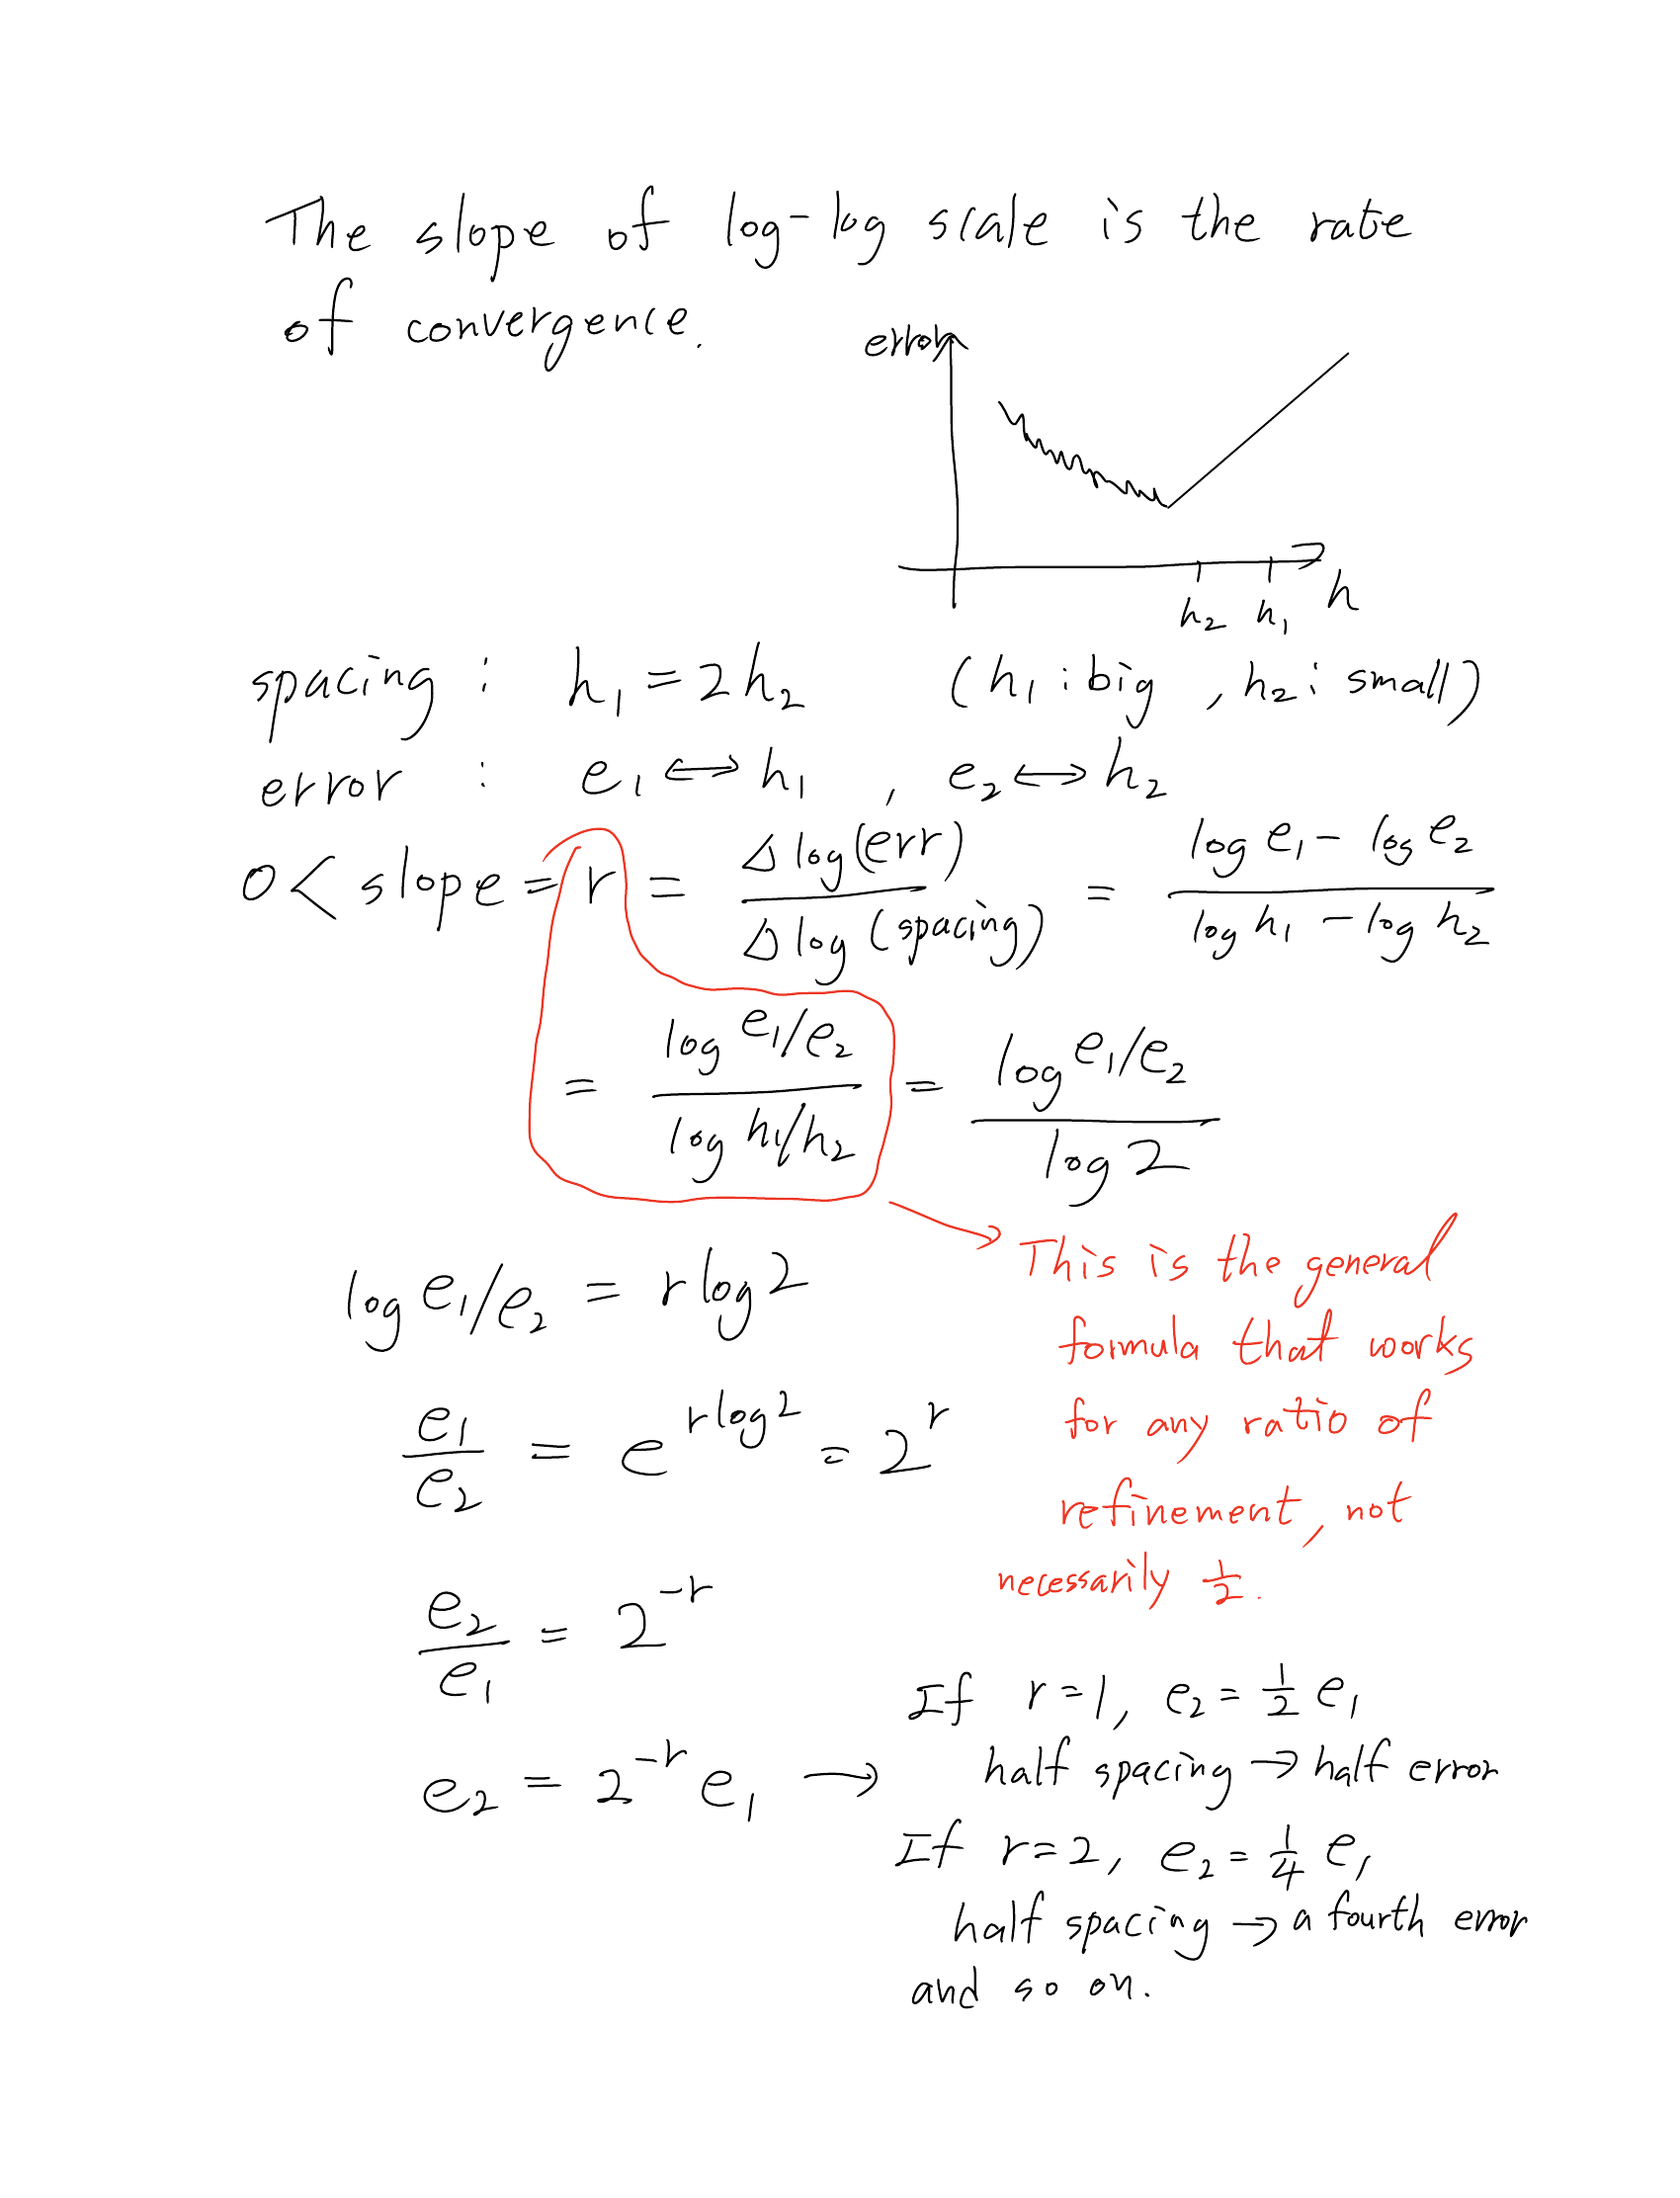 The slope of log-log scale is the rate
of convergence.
error
h₂ h₁ h
spacing : h₁ = 2h₂ (h₁ : big , h₂ : small)
error : e₁ ⟷ h₁ , e₂ ⟷ h₂
0 < slope = r = Δ log(err) / Δ log(spacing) = (log e₁ - log e₂) / (log h₁ - log h₂)
= (log e₁/e₂) / (log h₁/h₂) = (log e₁/e₂) / (log 2)
This is the general
formula that works
for any ratio of
refinement, not
necessarily 1/2.
log e₁/e₂ = r log 2
e₁/e₂ = e^(r log 2) = 2^r
e₂/e₁ = 2^(-r)
e₂ = 2^(-r) e₁ →
If r=1, e₂ = 1/2 e₁
half spacing → half error
If r=2, e₂ = 1/4 e₁
half spacing → a fourth error
and so on.